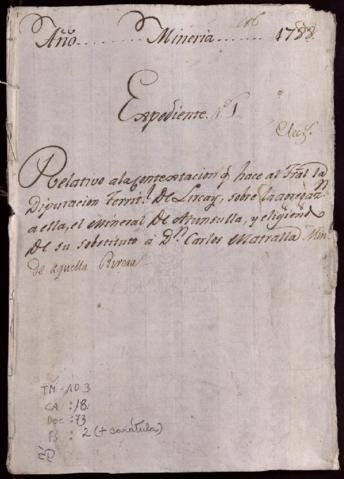 Año ........ Mineria ........ 1788.
Expediente. N 1
Relativo a la Contextacion q̃ hace al Tral la
Diputacion Territ.l De Lucay, sobre
a ella, el Mineral De y eligiend
De su Substituto á D.n Carlos Matralla Min
de aquella Rivera
TM-103
CA :18
Doc :73
Fs : 2 (+ carátula)